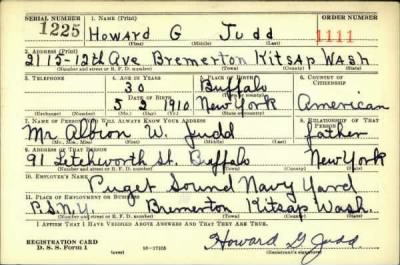 SERIAL NUMBER 1. NAME (Print) ORDER NUMBER
1225 Howard G Judd 1111
(First) (Middle) (Last)
2. ADDRESS (Print)
2115-12th Ave Bremerton Kitsap Wash
(Number and street or R. F. D. number) (Town) (County) (State)
3. TELEPHONE 4. AGE IN YEARS 5. PLACE OF BIRTH 6. COUNTRY OF CITIZENSHIP
30 Buffalo
DATE OF BIRTH (Town or county)
5 2 1910 New York American
(Mo.) (Day) (Yr.) (State or country)
7. NAME OF PERSON WHO WILL ALWAYS KNOW YOUR ADDRESS 8. RELATIONSHIP OF THAT PERSON
Mr Albion W. Judd father
(Mr., Mrs., Miss) (First) (Middle) (Last)
9. ADDRESS OF THAT PERSON
91 Letchworth St. Buffalo New York
(Number and street or R. F. D. number) (Town) (County) (State)
10. EMPLOYER'S NAME
Puget Sound Navy Yard
11. PLACE OF EMPLOYMENT OR BUSINESS
P.S.N.Y. Bremerton Kitsap Wash.
(Number and street or R. F. D. number) (Town) (County) (State)
I AFFIRM THAT I HAVE VERIFIED ABOVE ANSWERS AND THAT THEY ARE TRUE.
REGISTRATION CARD
D. S. S. Form 1 Howard G Judd
(over) (Registrant's signature)